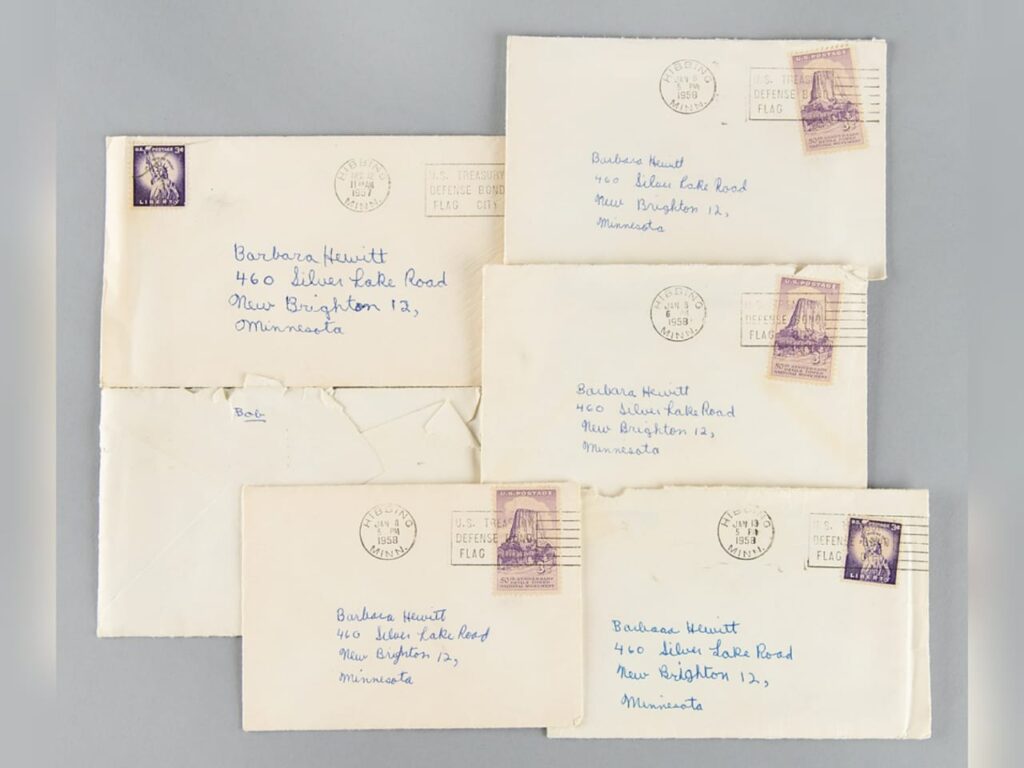 U.S. POSTAGE 3¢
LIBERTY
HIBBING
11 AM
1957
MINN.
U.S. TREASURY
DEFENSE BOND
FLAG CITY
Barbara Hewitt
460 Silver Lake Road
New Brighton 12,
Minnesota
Bob
HIBBING
JAN
5 PM
1958
MINN.
U.S. TREAS
DEFENSE B
FLAG
U.S. POSTAGE
3¢
50TH ANNIVERSARY
DEVILS TOWER
NATIONAL MONUMENT
Barbara Hewitt
460 Silver Lake Road
New Brighton 12,
Minnesota
HIBBING
JAN
6 PM
1958
MINN.
U.S. TREAS
DEFENSE BOND
FLAG
U.S. POSTAGE
3¢
50TH ANNIVERSARY
DEVILS TOWER
NATIONAL MONUMENT
Barbara Hewitt
460 Silver Lake Road
New Brighton 12,
Minnesota
HIBBING
JAN 8
5 PM
1958
MINN.
U.S. TREAS
DEFENSE BOND
FLAG
U.S. POSTAGE
3¢
50TH ANNIVERSARY
DEVILS TOWER
NATIONAL MONUMENT
Barbara Hewitt
460 Silver Lake Road
New Brighton 12,
Minnesota
HIBBING
JAN 13
5 PM
1958
MINN.
U.S.
DEFENSE
FLAG
U.S. POSTAGE 3¢
LIBERTY
Barbara Hewitt
460 Silver Lake Road
New Brighton 12,
Minnesota